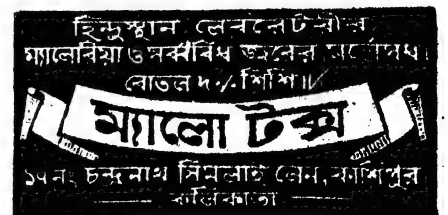 হিন্দুস্থান লেবরেটরীর
ম্যালেরিয়া ও সর্ব্ববিধ জ্বরের মহৌষধ।
বোতল ৸৹ শিশি॥৹
ম্যালো টক্স
১৭ নং চন্দ্রনাথ সিমলাই লেন, কাশিপুর
কলিকাতা